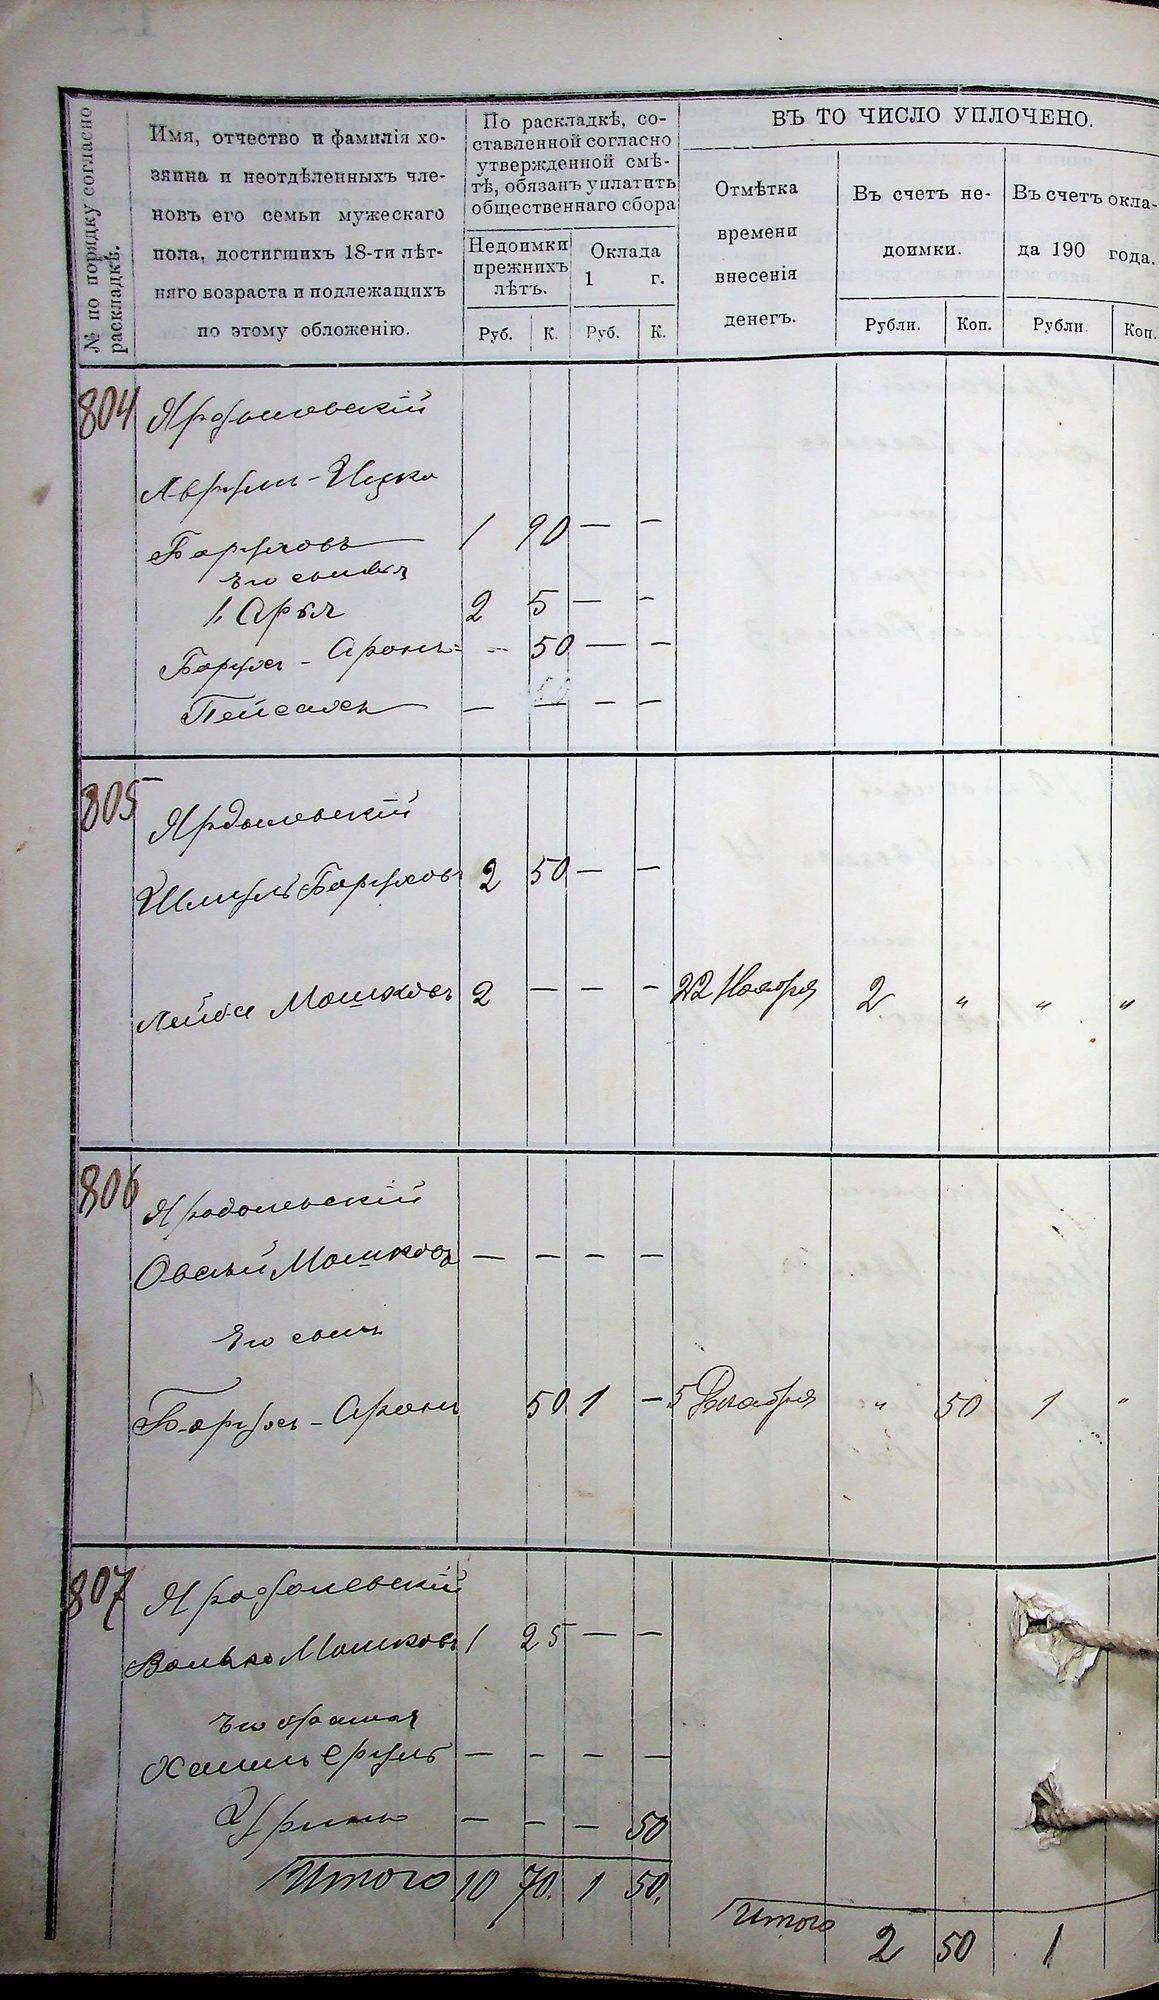 № по порядку согласно раскладкѣ.
Имя, отчество и фамилія хо-
зяина и неотдѣленныхъ чле-
новъ его семьи мужескаго
пола, достигшихъ 18-ти лѣт-
няго возраста и подлежащихъ
по этому обложенію.
По раскладкѣ, со-
ставленной согласно
утвержденной смѣ-
тѣ, обязанъ уплатить
общественнаго сбора
Недоимки
прежнихъ
лѣтъ.
Оклада
1 г.
Руб. К. Руб. К.
ВЪ ТО ЧИСЛО УПЛОЧЕНО.
Отмѣтка
времени
внесенія
денегъ.
Въ счетъ не-
доимки.
Въ счетъ окла-
да 190 года.
Рубли. Коп. Рубли. Коп.
804
Аврумъ-Ицко
Боруховъ 1 90 — —
Его сыновья
1, Арья 2 5 — —
Борухъ-Аронъ - 50 — —
Пейсахъ — — — —
805
Ярдолевскій
Шмуль Боруховъ 2 50 — —
Лейба Мошковъ 2 — — — 22 Ноября 2 " " "
806
Овсѣй Мошковъ — — — —
Его сынъ
Борухъ-Аронъ 50 1 — 5 Декабря " 50 1 "
807
Волько Мошковъ 1 25 — —
Его братья
Хаимъ Сруль — - — —
— - — 50
Итого 10 70. 1 50.
Итого 2 50 1